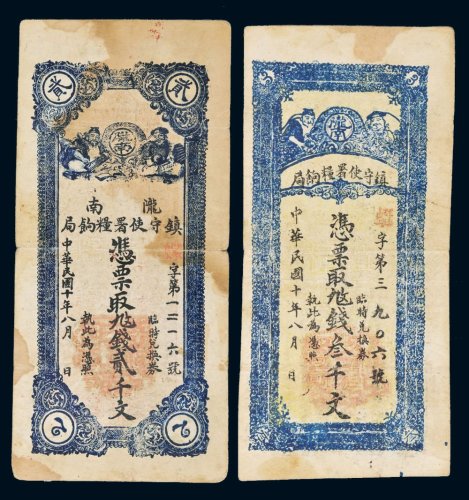 貳 貳
隴南
鎮守使署糧餉局
字第一二一六號
臨時兌換券
憑票取錢貳千文
執此為憑照
中華民國十年八月 日
鎮守使署糧餉局
字第三九〇六號
臨時兌換券
憑票取錢叁千文
執此為憑照
中華民國十年八月 日